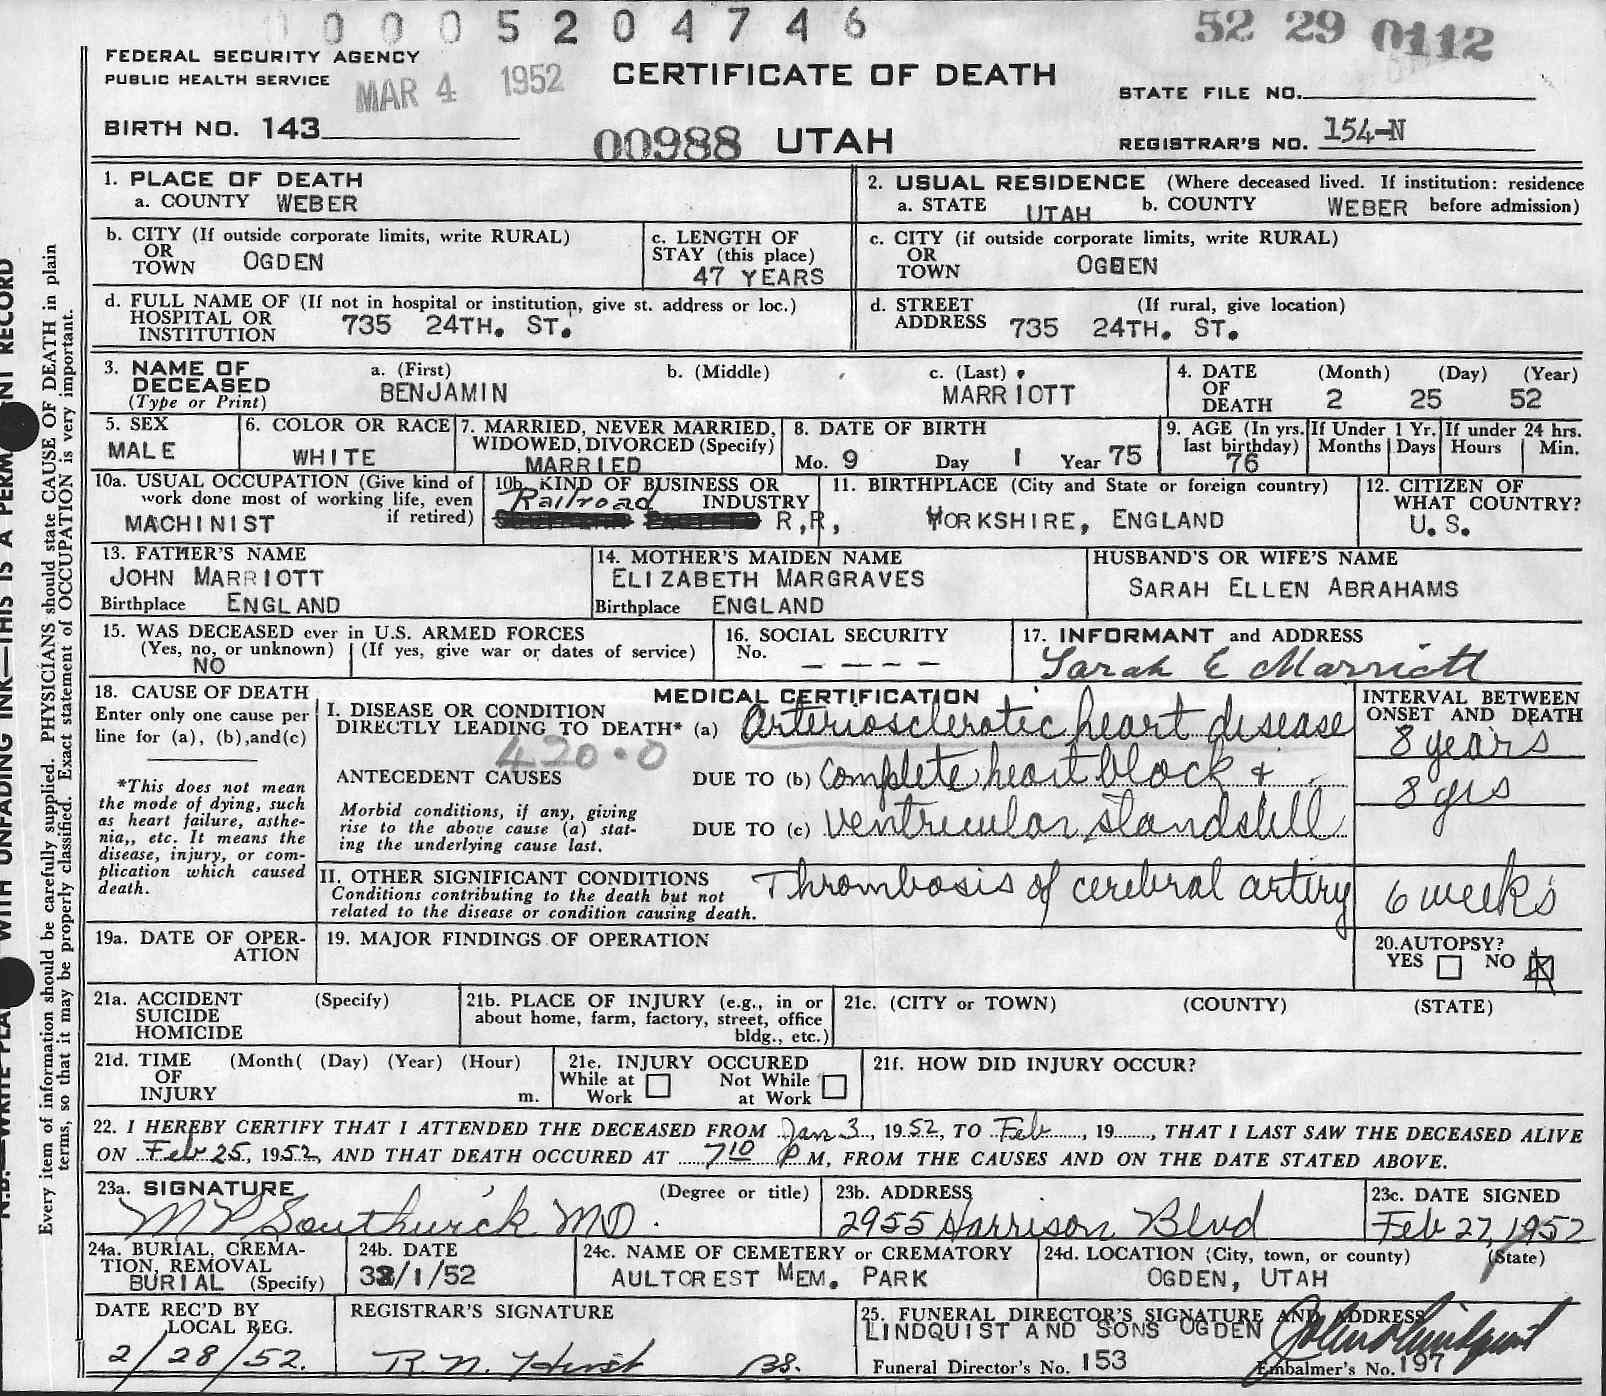 0 0 0 5 2 0 4 7 4 6 52 29 0112
FEDERAL SECURITY AGENCY
PUBLIC HEALTH SERVICE MAR 4 1952 CERTIFICATE OF DEATH STATE FILE NO.
BIRTH NO. 143 00988 UTAH REGISTRAR'S NO. 154-N
1. PLACE OF DEATH
a. COUNTY WEBER
2. USUAL RESIDENCE (Where deceased lived. If institution: residence
a. STATE UTAH b. COUNTY WEBER before admission)
b. CITY (If outside corporate limits, write RURAL)
OR
TOWN OGDEN
c. LENGTH OF
STAY (this place)
47 YEARS
c. CITY (if outside corporate limits, write RURAL)
OR
TOWN OGDEN
d. FULL NAME OF (If not in hospital or institution, give st. address or loc.)
HOSPITAL OR
INSTITUTION 735 24TH. ST.
d. STREET (If rural, give location)
ADDRESS 735 24TH. ST.
3. NAME OF
DECEASED
(Type or Print)
a. (First) b. (Middle) c. (Last)
BENJAMIN MARRIOTT
4. DATE (Month) (Day) (Year)
OF
DEATH 2 25 52
5. SEX
MALE
6. COLOR OR RACE
WHITE
7. MARRIED, NEVER MARRIED,
WIDOWED, DIVORCED (Specify)
MARRIED
8. DATE OF BIRTH
Mo. 9 Day 1 Year 75
9. AGE (In yrs.
last birthday)
76
If Under 1 Yr.
Months Days
If under 24 hrs.
Hours Min.
10a. USUAL OCCUPATION (Give kind of
work done most of working life, even
if retired)
MACHINIST
10b. KIND OF BUSINESS OR
INDUSTRY
Railroad
R.R.
11. BIRTHPLACE (City and State or foreign country)
YORKSHIRE, ENGLAND
12. CITIZEN OF
WHAT COUNTRY?
U. S.
13. FATHER'S NAME
JOHN MARRIOTT
Birthplace ENGLAND
14. MOTHER'S MAIDEN NAME
ELIZABETH MARGRAVES
Birthplace ENGLAND
HUSBAND'S OR WIFE'S NAME
SARAH ELLEN ABRAHAMS
15. WAS DECEASED ever in U.S. ARMED FORCES
(Yes, no, or unknown) (If yes, give war or dates of service)
NO
16. SOCIAL SECURITY
No. - - - -
17. INFORMANT and ADDRESS
Sarah E Marriott
18. CAUSE OF DEATH
Enter only one cause per
line for (a), (b), and (c)
*This does not mean
the mode of dying, such
as heart failure, asthe-
nia,, etc. It means the
disease, injury, or com-
plication which caused
death.
MEDICAL CERTIFICATION
I. DISEASE OR CONDITION
DIRECTLY LEADING TO DEATH* (a) Arteriosclerotic heart disease
420.0
ANTECEDENT CAUSES DUE TO (b) Complete heart block &
Morbid conditions, if any, giving
rise to the above cause (a) stat-
ing the underlying cause last.
DUE TO (c) ventricular standstill
II. OTHER SIGNIFICANT CONDITIONS
Conditions contributing to the death but not
related to the disease or condition causing death.
Thrombosis of cerebral artery
INTERVAL BETWEEN
ONSET AND DEATH
8 years
8 yrs
6 weeks
19a. DATE OF OPER-
ATION
19. MAJOR FINDINGS OF OPERATION
20. AUTOPSY?
YES NO X
21a. ACCIDENT (Specify)
SUICIDE
HOMICIDE
21b. PLACE OF INJURY (e.g., in or
about home, farm, factory, street, office
bldg., etc.)
21c. (CITY or TOWN) (COUNTY) (STATE)
21d. TIME (Month( (Day) (Year) (Hour)
OF
INJURY m.
21e. INJURY OCCURED
While at Work Not While at Work
21f. HOW DID INJURY OCCUR?
22. I HEREBY CERTIFY THAT I ATTENDED THE DECEASED FROM Jan 3, 1952, TO Feb, 19, THAT I LAST SAW THE DECEASED ALIVE
ON Feb 25, 1952, AND THAT DEATH OCCURED AT 7 10 P M, FROM THE CAUSES AND ON THE DATE STATED ABOVE.
23a. SIGNATURE (Degree or title)
M P Southwick MD.
23b. ADDRESS
2955 Harrison Blvd
23c. DATE SIGNED
Feb 27, 1952
24a. BURIAL, CREMA-
TION, REMOVAL
BURIAL (Specify)
24b. DATE
3/1/52
24c. NAME OF CEMETERY or CREMATORY
AULTOREST MEM. PARK
24d. LOCATION (City, town, or county) (State)
OGDEN, UTAH
DATE REC'D BY
LOCAL REG.
2/28/52.
REGISTRAR'S SIGNATURE
R. N. Hirst
25. FUNERAL DIRECTOR'S SIGNATURE AND ADDRESS
LINDQUIST AND SONS OGDEN John Lindquist
Funeral Director's No. 153 Embalmer's No. 197
Every item of information should be carefully supplied. PHYSICIANS should state CAUSE OF DEATH in plain
terms, so that it may be properly classified. Exact statement of OCCUPATION is very important.
WITH UNFADING INK—THIS IS A PERMANENT RECORD